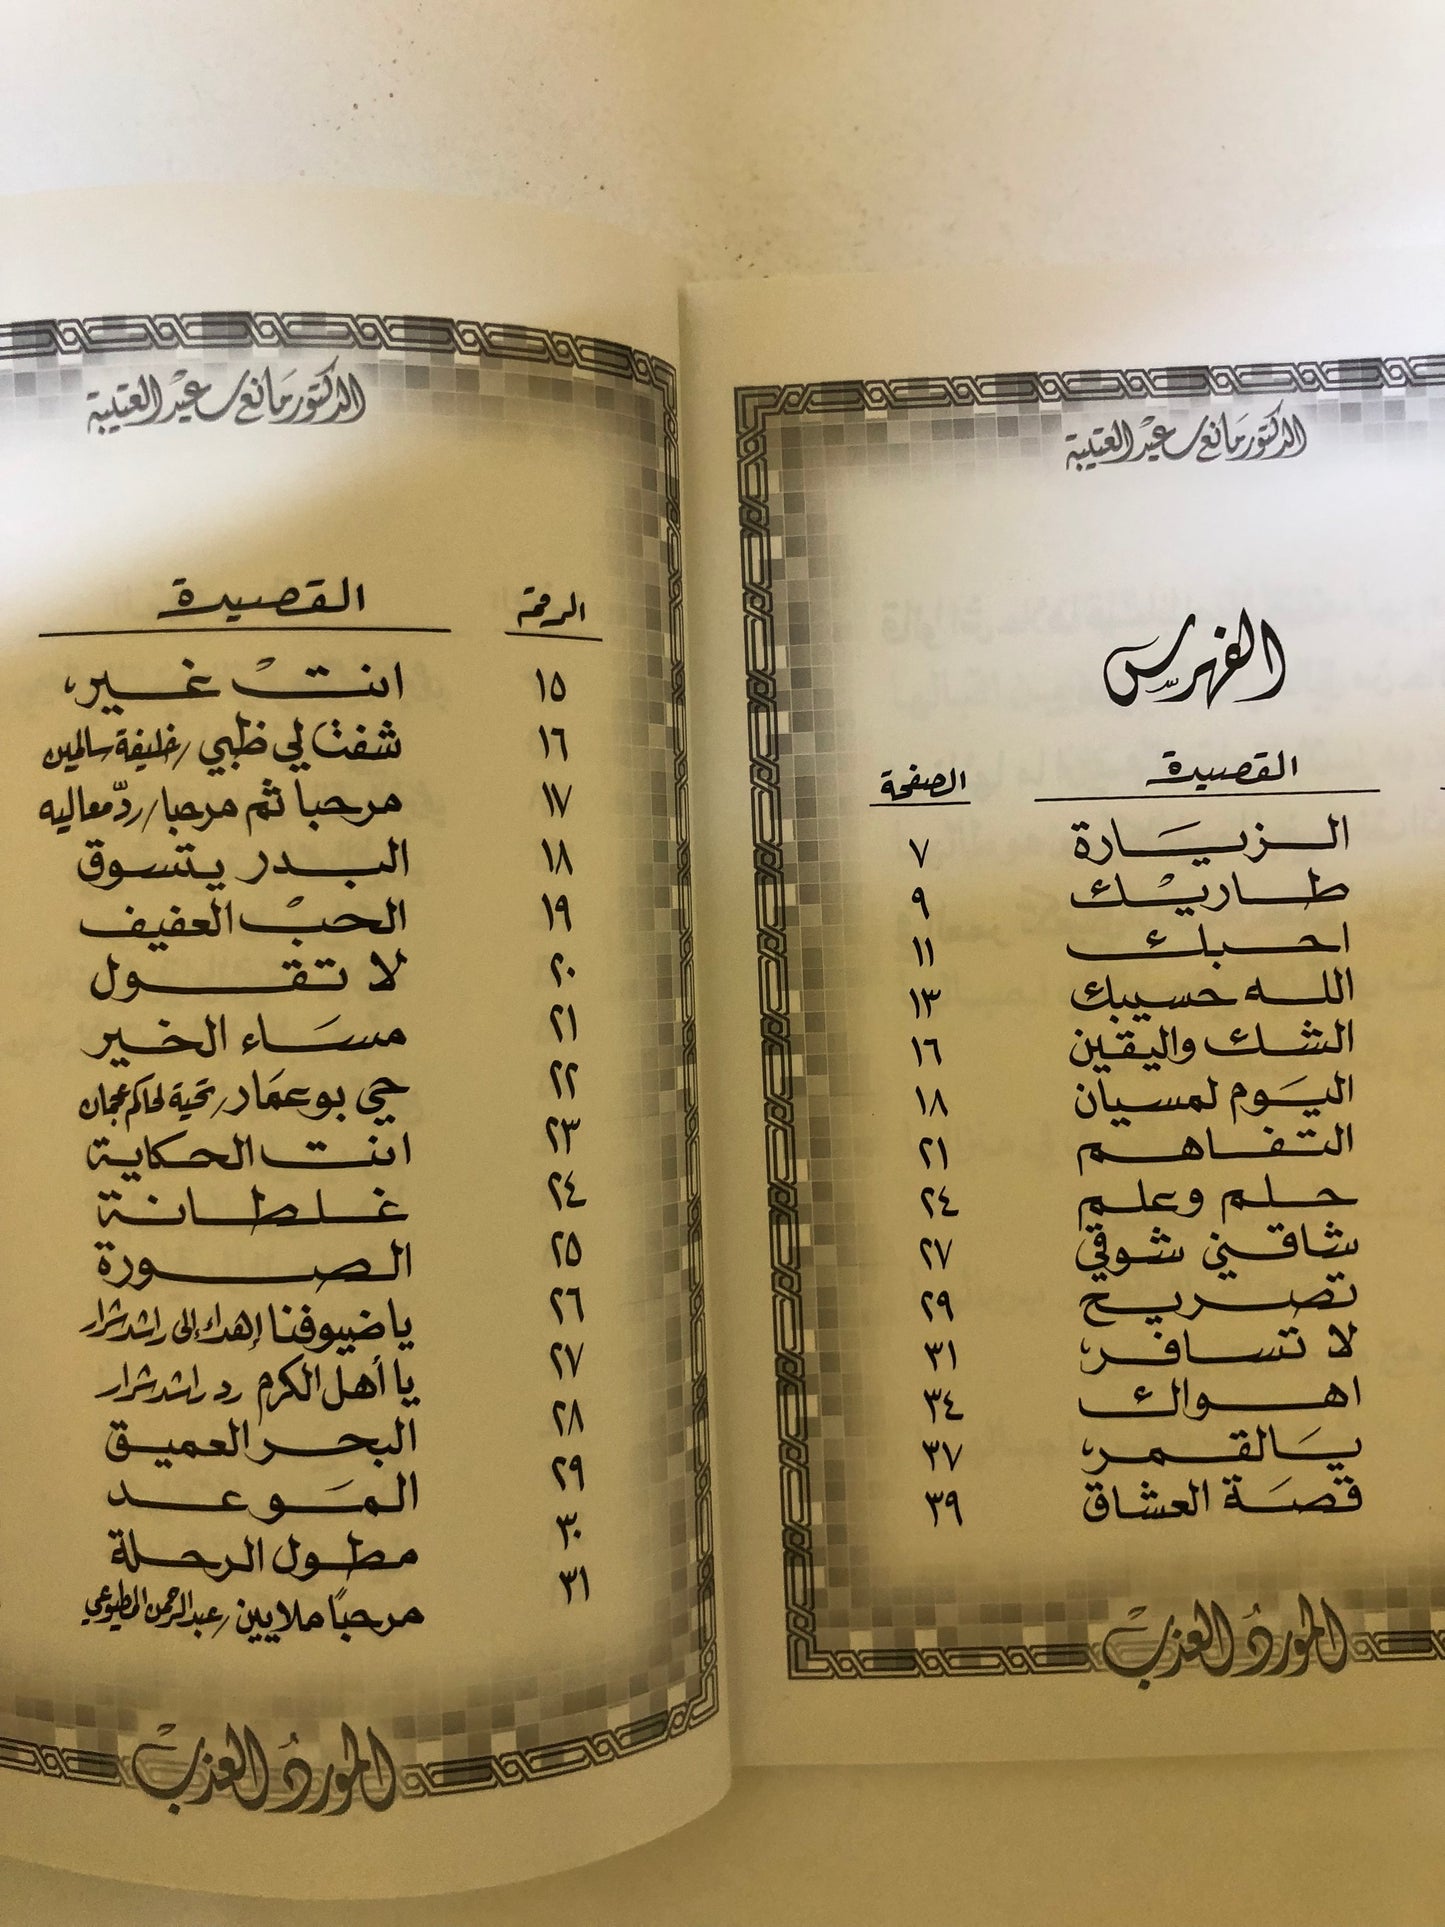 الدكتور مانع سعيد العتيبة
الفهرس
القصيدة الصفحة
الزيارة ٧
طاريك ٩
احبك ١١
الله حسيبك ١٣
الشك واليقين ١٦
اليوم لمسيان ١٨
التفاهم ٢١
حلم وعلم ٢٤
شاقني شوقي ٢٧
تصريح ٢٩
لا تسافر ٣١
اهواك ٣٤
يالقمر ٣٧
قصة العشاق ٣٩
المورد العذب
الدكتور مانع سعيد العتيبة
الرقم القصيدة
١٥ انت غير
١٦ شفت لي ظبي / خليفة سالمين
١٧ مرحبا ثم مرحبا / ردّ معاليه
١٨ البدر يتسوق
١٩ الحب العفيف
٢٠ لا تقول
٢١ مساء الخير
٢٢ حي بو عمار / تحية لحاكم عجمان
٢٣ انت الحكاية
٢٤ غلطانة
٢٥ الصورة
٢٦ يا ضيوفنا إهداء إلى راشد شرار
٢٧ يا أهل الكرم رد راشد شرار
٢٨ البحر العميق
٢٩ الموعد
٣٠ مطول الرحلة
٣١ مرحباً ملايين / عبدالرحمن المطيوعي
المورد العذب